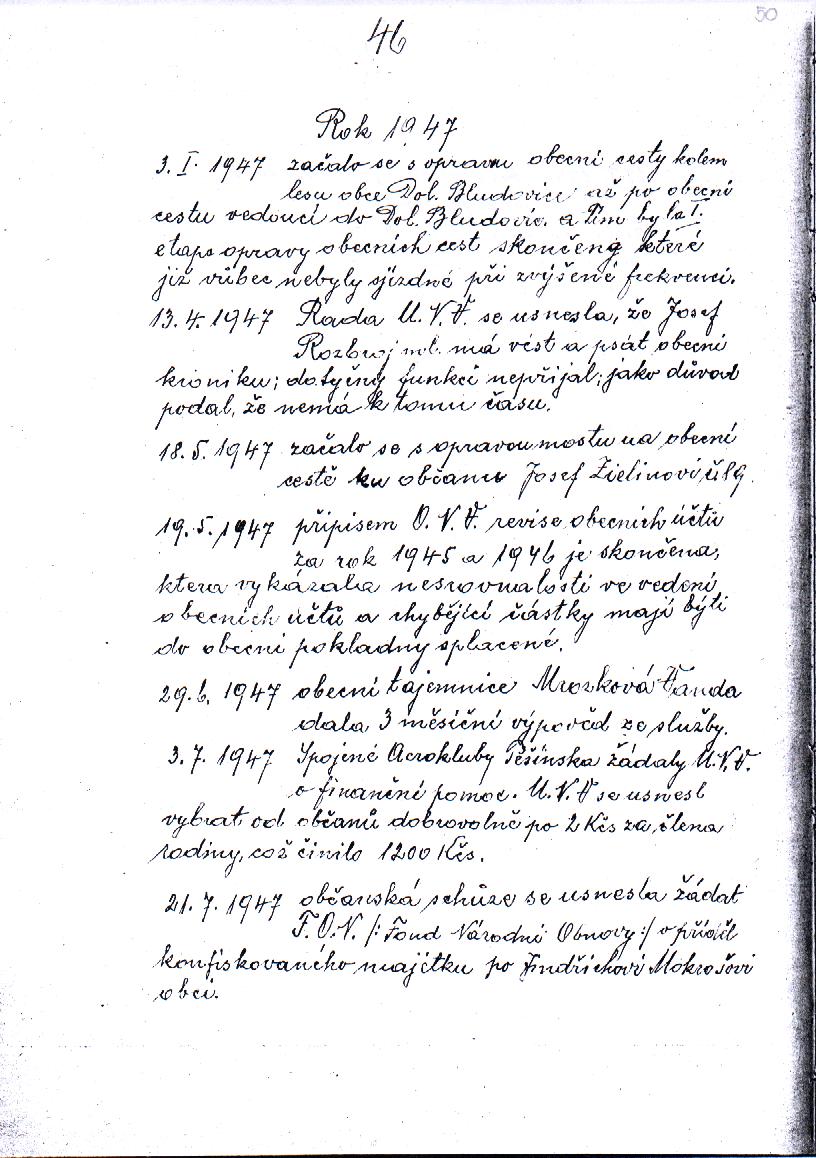 50
46
Rok 1947
3. I. 1947 začalo se s opravou obecní cesty kolem
lesu obce Dol. Bludovice až po obecní
cestu vedoucí do Dol. Bludovic. a tím byla I.
etapa opravy obecních cest skončena, které
již vůbec nebyly sjízdné při zvýšené frekvenci.
13. 4. 1947 Rada M. N. V. se usnesla, že Josef
Rozbroj ml. má vést a psát obecní
kroniku; dotyčný funkci nepřijal; jako důvod
podal, že nemá k tomu času.
18. 5. 1947 začalo se s opravou mostu na obecní
cestě ku občanu Josef Zielinovi č 89.
19. 5. 1947 připisem O. N. V. revise obecních účtů
za rok 1945 a 1946 je skončena,
ktera vykázala nesrovnalosti ve vedení
obecních účtů a chybějící částky mají býti
do obecní pokladny splacené.
29. 6. 1947 obecní tajemnice Mrozková Vanda
dala 3 měsíční výpověd ze služby.
3. 7. 1947 Spojené Aerokluby Těšínska žádaly M. N. V.
o finanční pomoc. M. N. V se usnesl
vybrat od občanů dobrovolně po 2 Kčs za člena
rodiny, což činilo 1200 Kčs.
21. 7. 1947 občanská schůze se usnesla žádat
F. O. N. /: Fond Národní Obnovy :/ o příděl
konfiskovaného majetku po Jindřichovi Mokrošovi
obci.